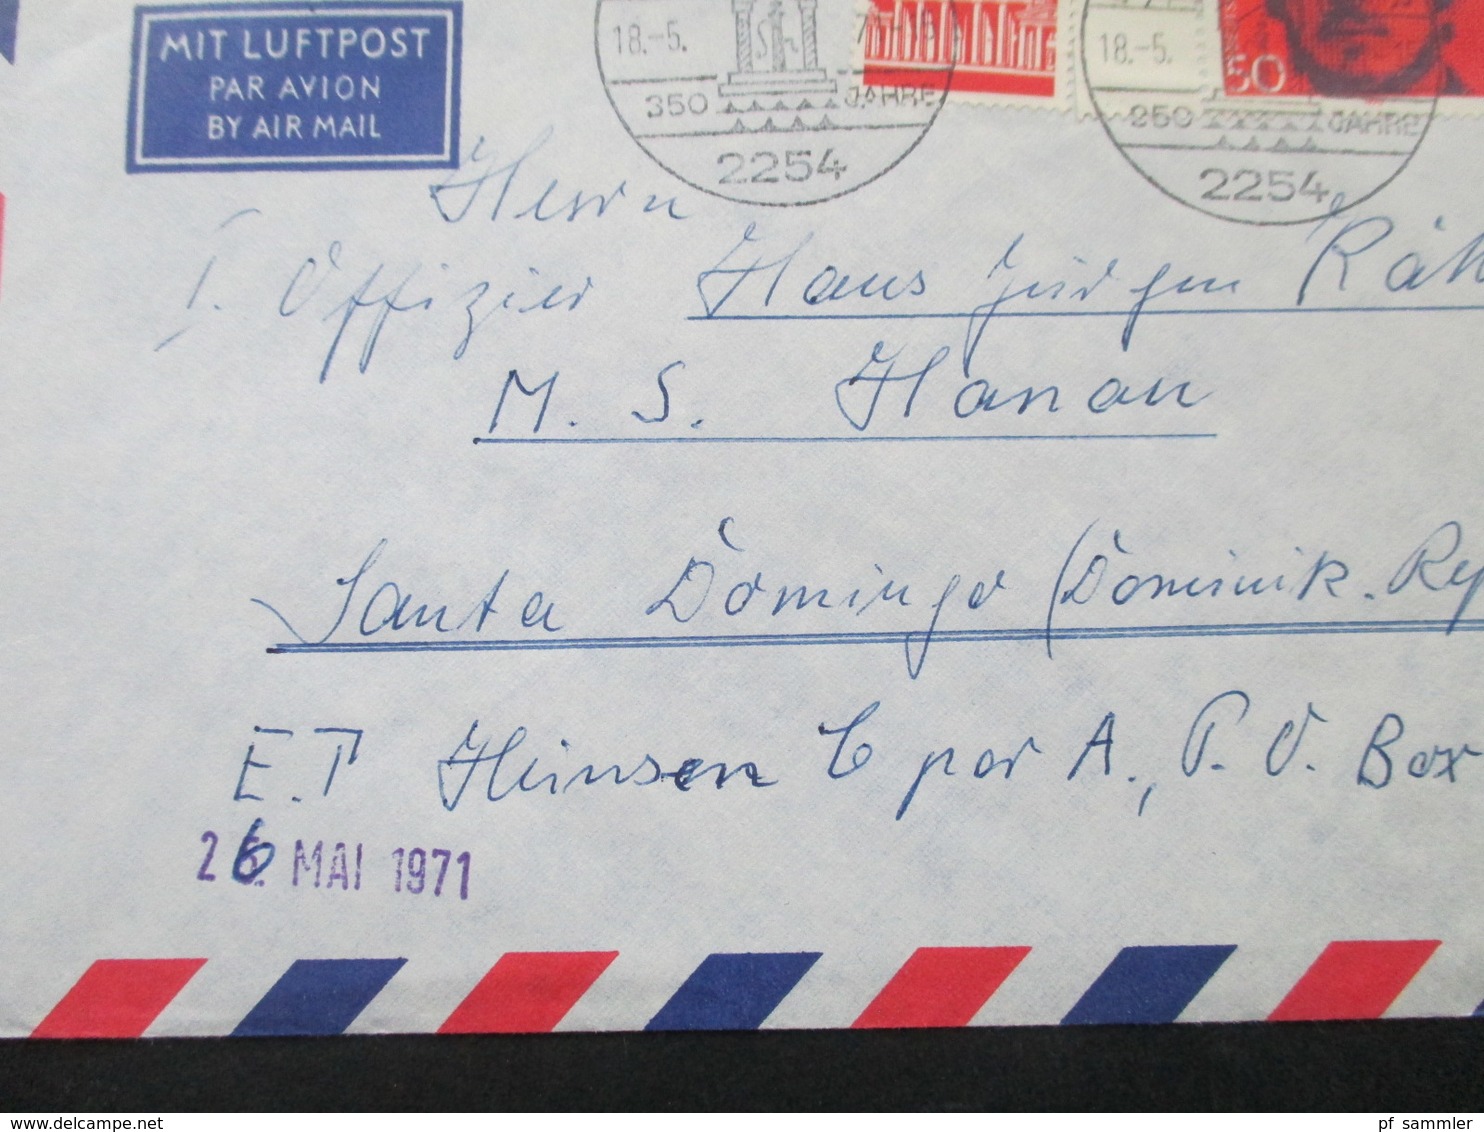 MIT LUFTPOST
PAR AVION
BY AIR MAIL
18.-5.
350 JAHRE
2254
18.-5.
50
350 JAHRE
2254
Herrn
I. Offizier Hans Jürgen
M. S. Hanau
Santa Domingo (Dominik. Rep
E. T Heinsen C por A., P. O. Box
26. MAI 1971
pf_sammler